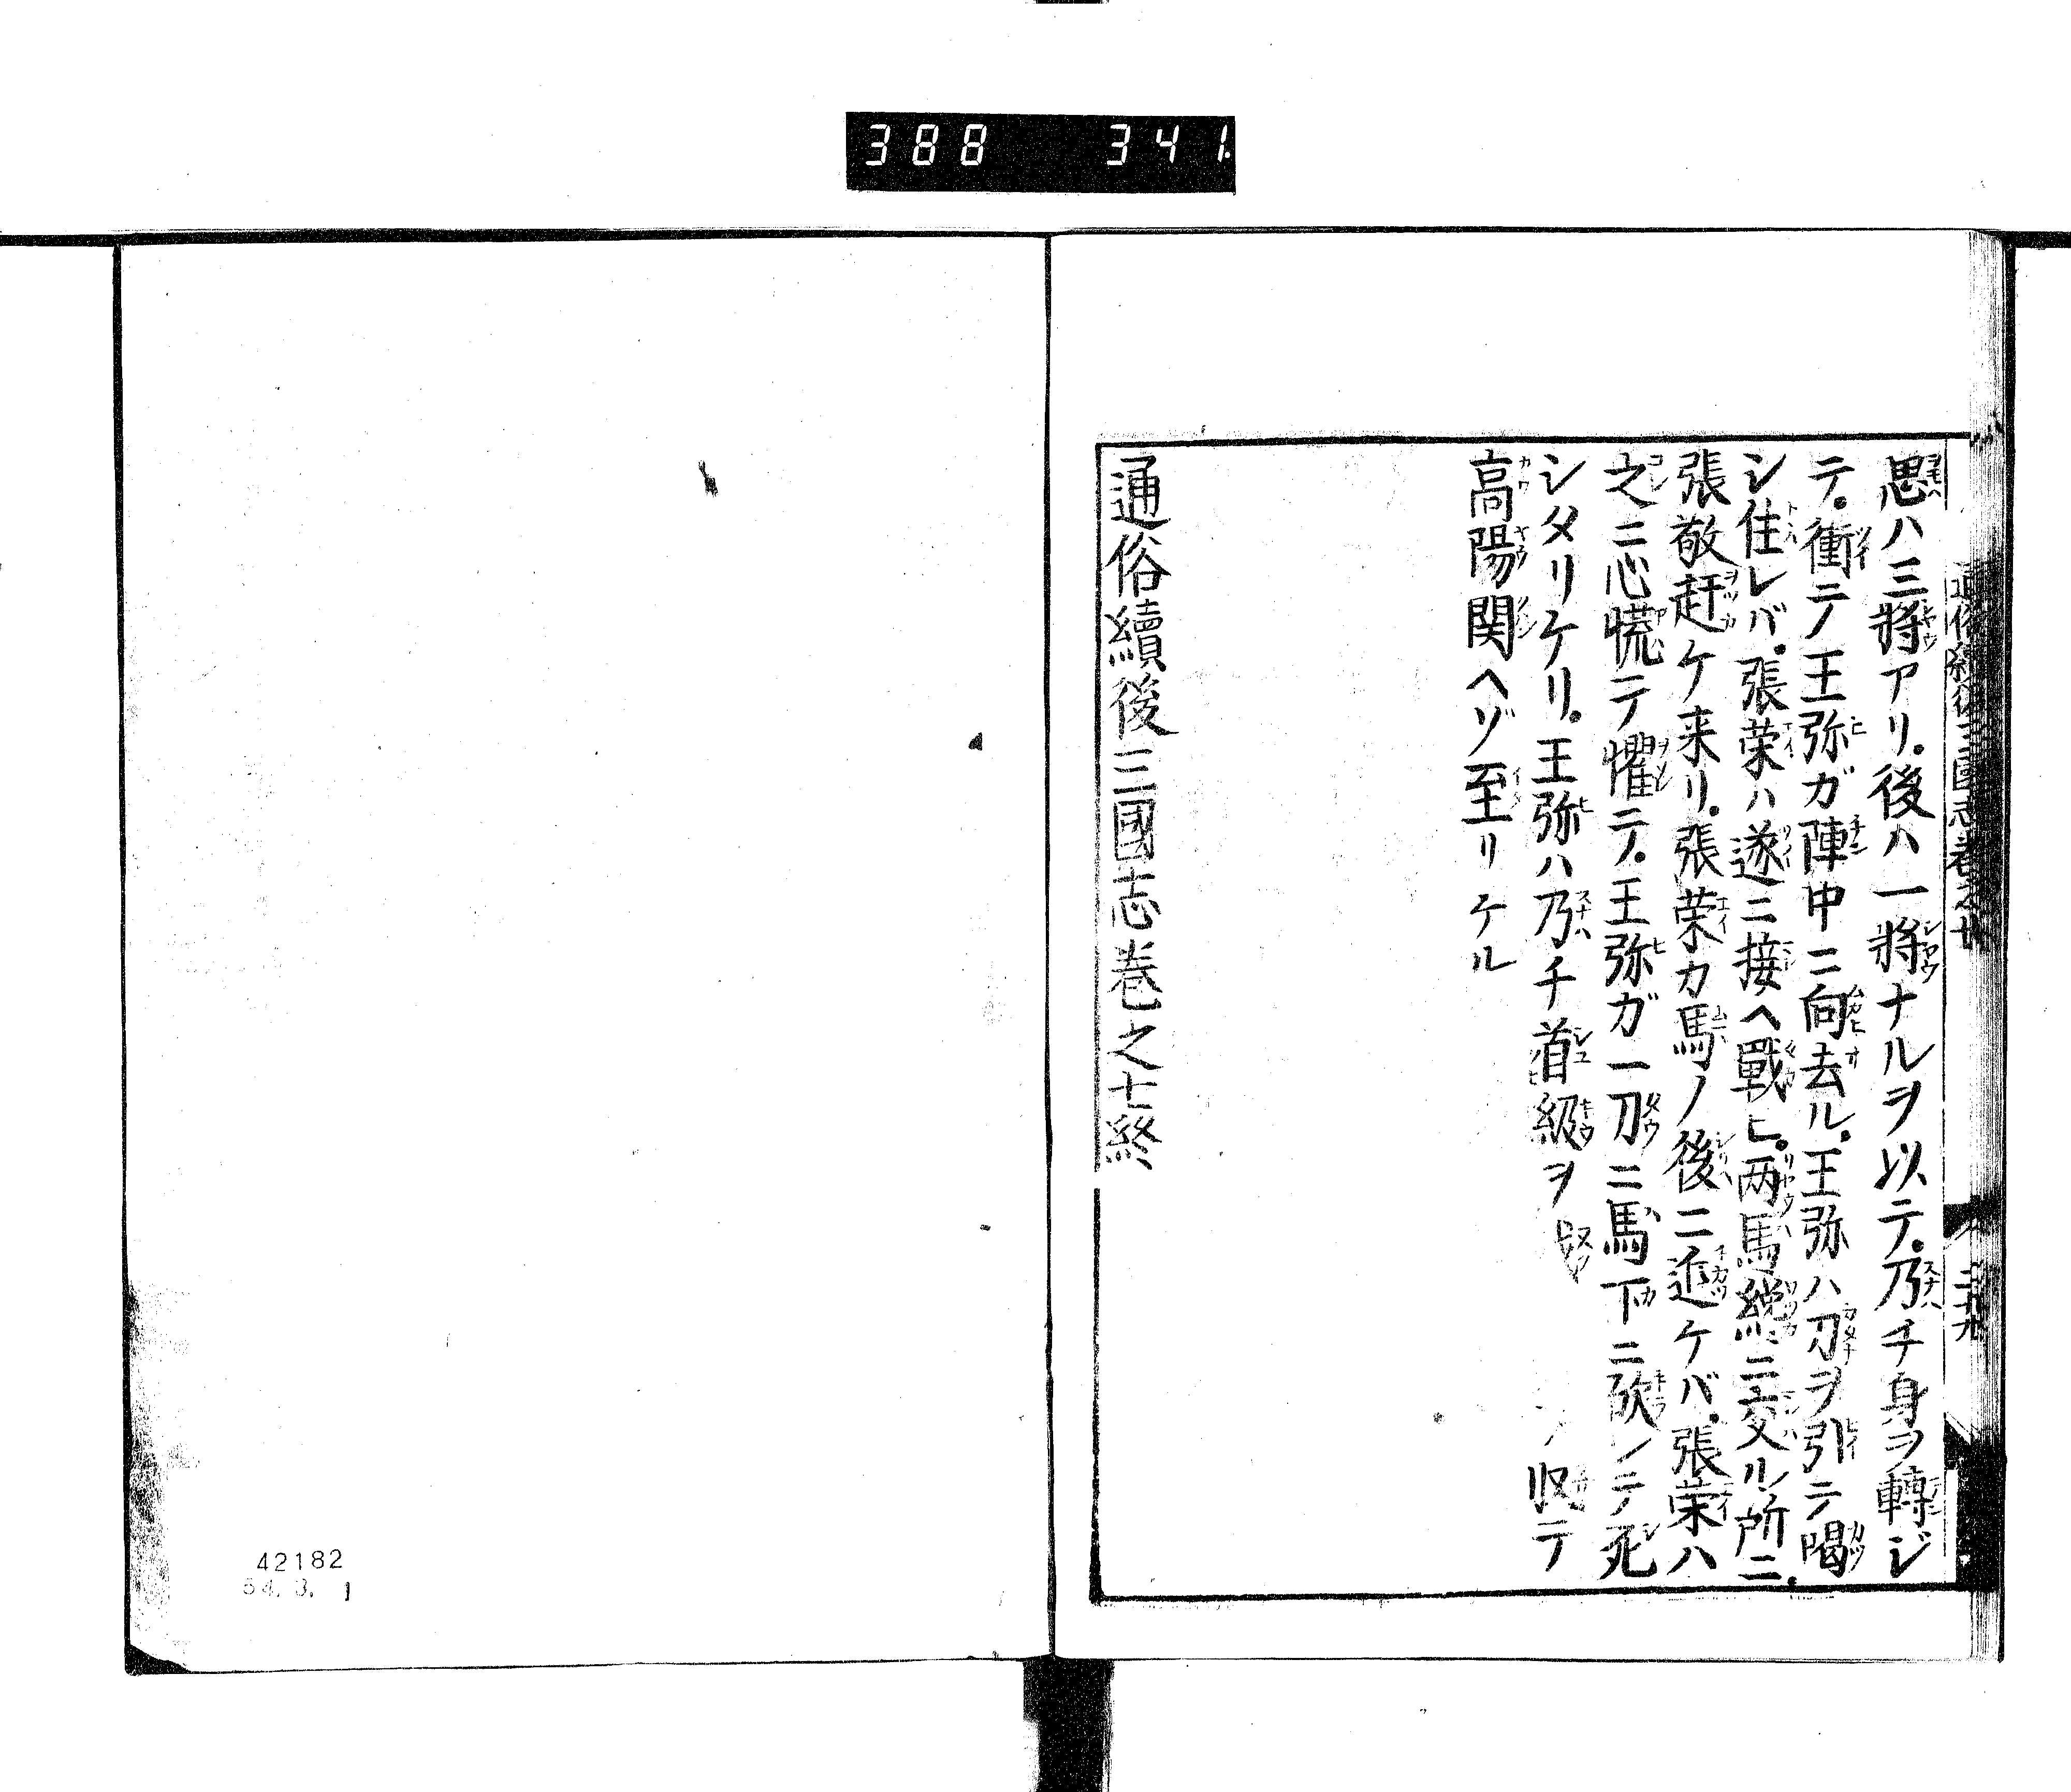 388 341
思ハ三將アリ。後ハ一將ナルヲ以テ。乃チ身ヲ轉ジ
テ。衝テ王弥ガ陣中ニ向去ル。王弥ハ刀ヲ引テ喝
シ住レバ。張荣ハ遂ニ接ヘ戰ヒ。两馬纔ニ交ル所ニ。
張敬赶ケ来リ。張荣カ馬ノ後ニ近ケバ。張荣ハ
之ニ心慌テ懼テ。王弥ガ一刀ニ馬下ニ砍レテ死
シタリケリ。王弥ハ乃チ首級ヲ収テ
高陽関ヘゾ至リケル
通俗續後三國志巻之七終
42182
54. 3. 1